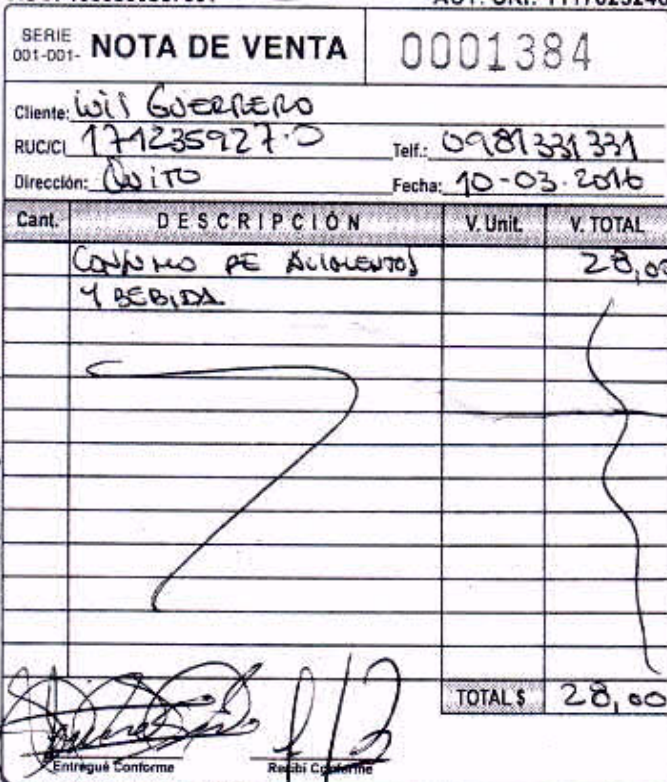 SERIE
001-001- NOTA DE VENTA 0001384
Cliente: LUIS GUERRERO
RUC/CI 171235927-0 Telf.: 0981331331
Dirección: QUITO Fecha: 10-03-2016
Cant. DESCRIPCIÓN V. Unit. V. TOTAL
CONSUMO DE ALIMENTOS 28,00
Y BEBIDA
TOTAL $ 28,00
Entregué Conforme Recibí Conforme